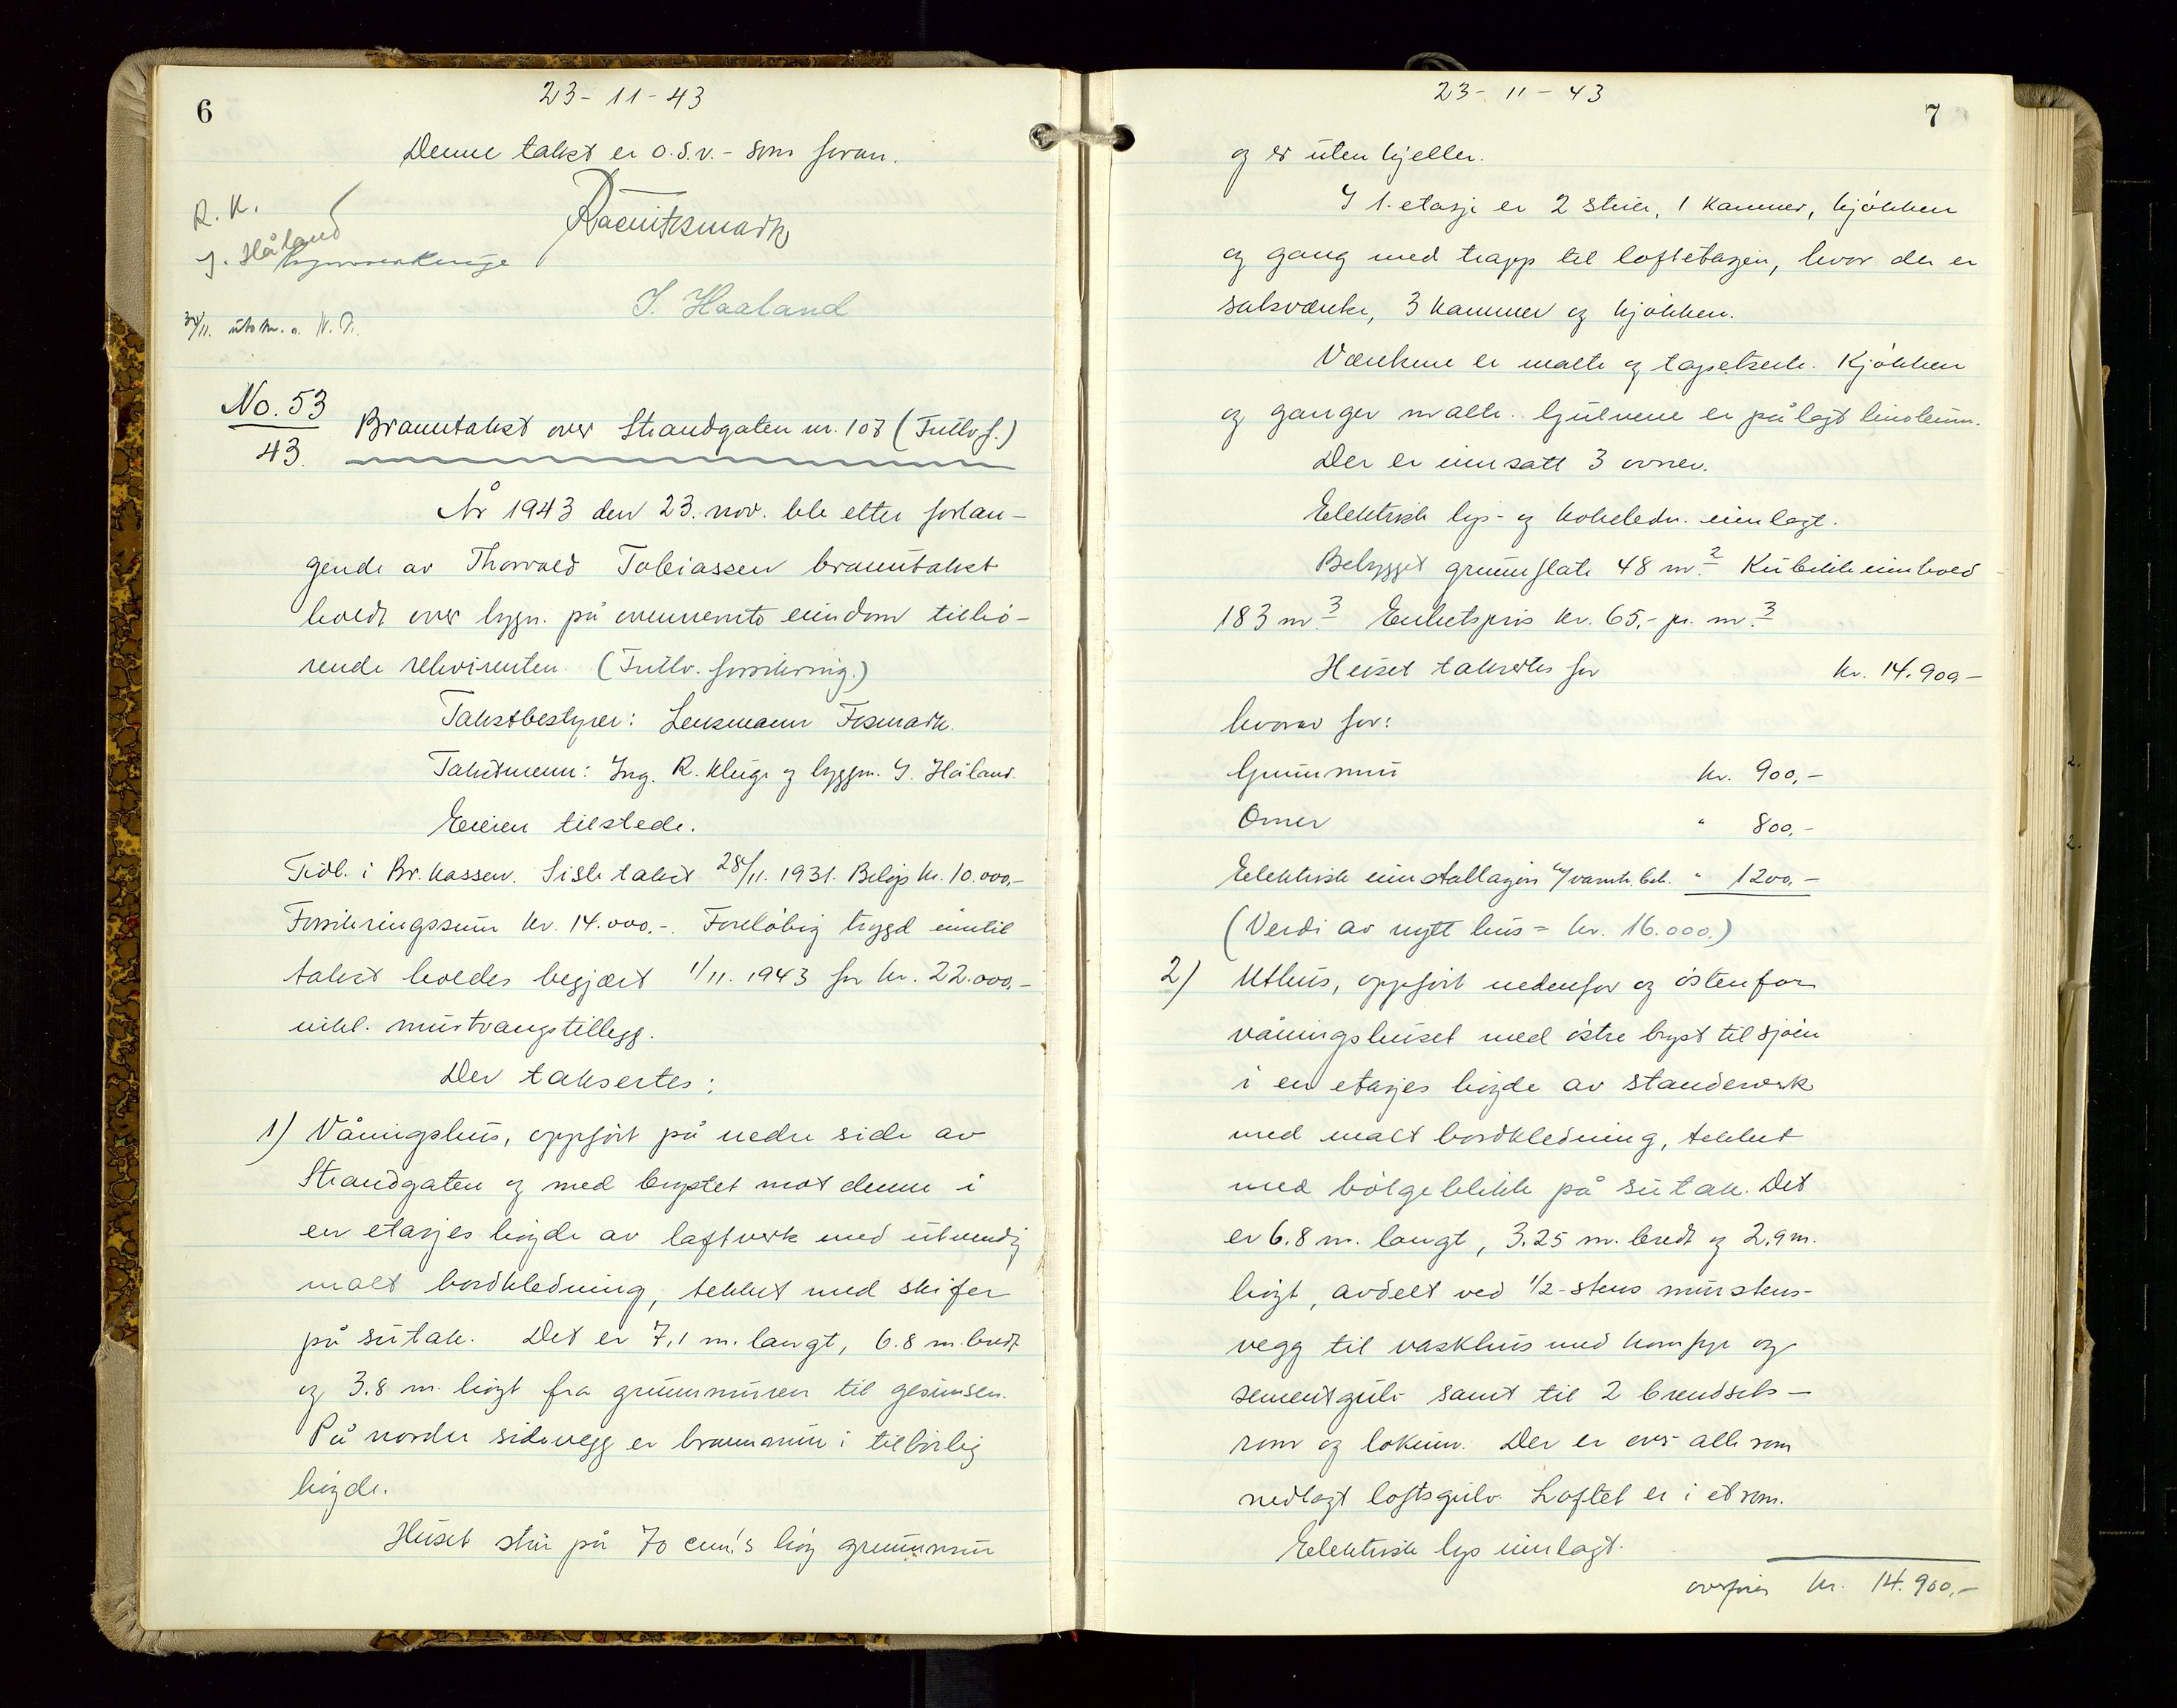 6
23-11-43
Denne takst er o.s.v. - som foran.
R. K.
J. Håland
J. Haaland
30/11. utskr. s. N. Br.
No. 53
43.
Branntakst over Strandgaten nr. 108 (Fullv f.)
År 1943 den 23. nov. ble etter forlan-
gende av Thorvald Tobiassen branntakst
holdt over bygn. på ovennevnte eiendom tilhø-
rende rekvirenten. (Fullv. forsikring.)
Takstbestyrer: Lensmann Fosmark.
Takstmenn: Ing. R. Kluge og byggm. J. Håland.
Eieren tilstede.
Tidl. i Br. kassen. Siste takst 28/11. 1931. Beløp kr. 10.000,-
Forsikringssum kr. 14.000.-. Foreløbig trygd inntil
takst holdes begjært 1/11. 1943 for kr. 22.000,-
inkl. murtvangstillegg.
Der taksertes:
1) Våningshus, oppført på nedre side av
Strandgaten og med brystet mot denne i
en etasjes høyde av laftverk med utvendig
malt bordkledning, tekket med skifer
på sutak. Det er 7,1 m. langt, 6.8 m. bredt
og 3.8 m. høyt fra grunnmuren til gesimsen.
På nordre sidevegg er brannmur i tilbørlig
høyde.
Huset står på 70 cm's høy grunnmur
7
23-11-43
og er uten kjeller.
I 1. etasje er 2 stuer, 1 kammer, kjøkken
og gang med trapp til loftetasjen, hvor der er
salsværelse, 3 kammer og kjøkken.
Værelsene er malte og tapetserte. Kjøkken
og ganger malte. Gulvene er pålagt linoleum.
Der er innsatt 3 ovner.
Elektrisk lys- og kokeledn. innlagt.
Bebygget grunnflate 48 m.2 Kubikkinnhold
183 m.3 Enhetspris kr. 65,- pr. m.3
Huset taksertes for kr. 14.900,-
hvorav for:
Grunnmur kr. 900,-
Ovner " 800,-
Elektrisk installasjon m/varmtv.beh. " 1200,-
(Verdi av nytt hus = kr. 16.000.)
2) Uthus, oppført nedenfor og østenfor
våningshuset med østre bryst til sjøen
i en etasjes høyde av stenderverk
med malt bordkledning, tekket
med bølgeblikk på sutak. Det
er 6.8 m. langt, 3.25 m. bredt og 2.9 m.
høyt, avdelt ved 1/2-stens murstens-
vegg til vaskhus med komfyr og
sementgulv samt til 2 brendsels-
rom og lokum. Der er over alle rom
nedlagt loftsgulv. Loftet er i et rom.
Elektrisk lys innlagt.
overføres kr. 14.900,-